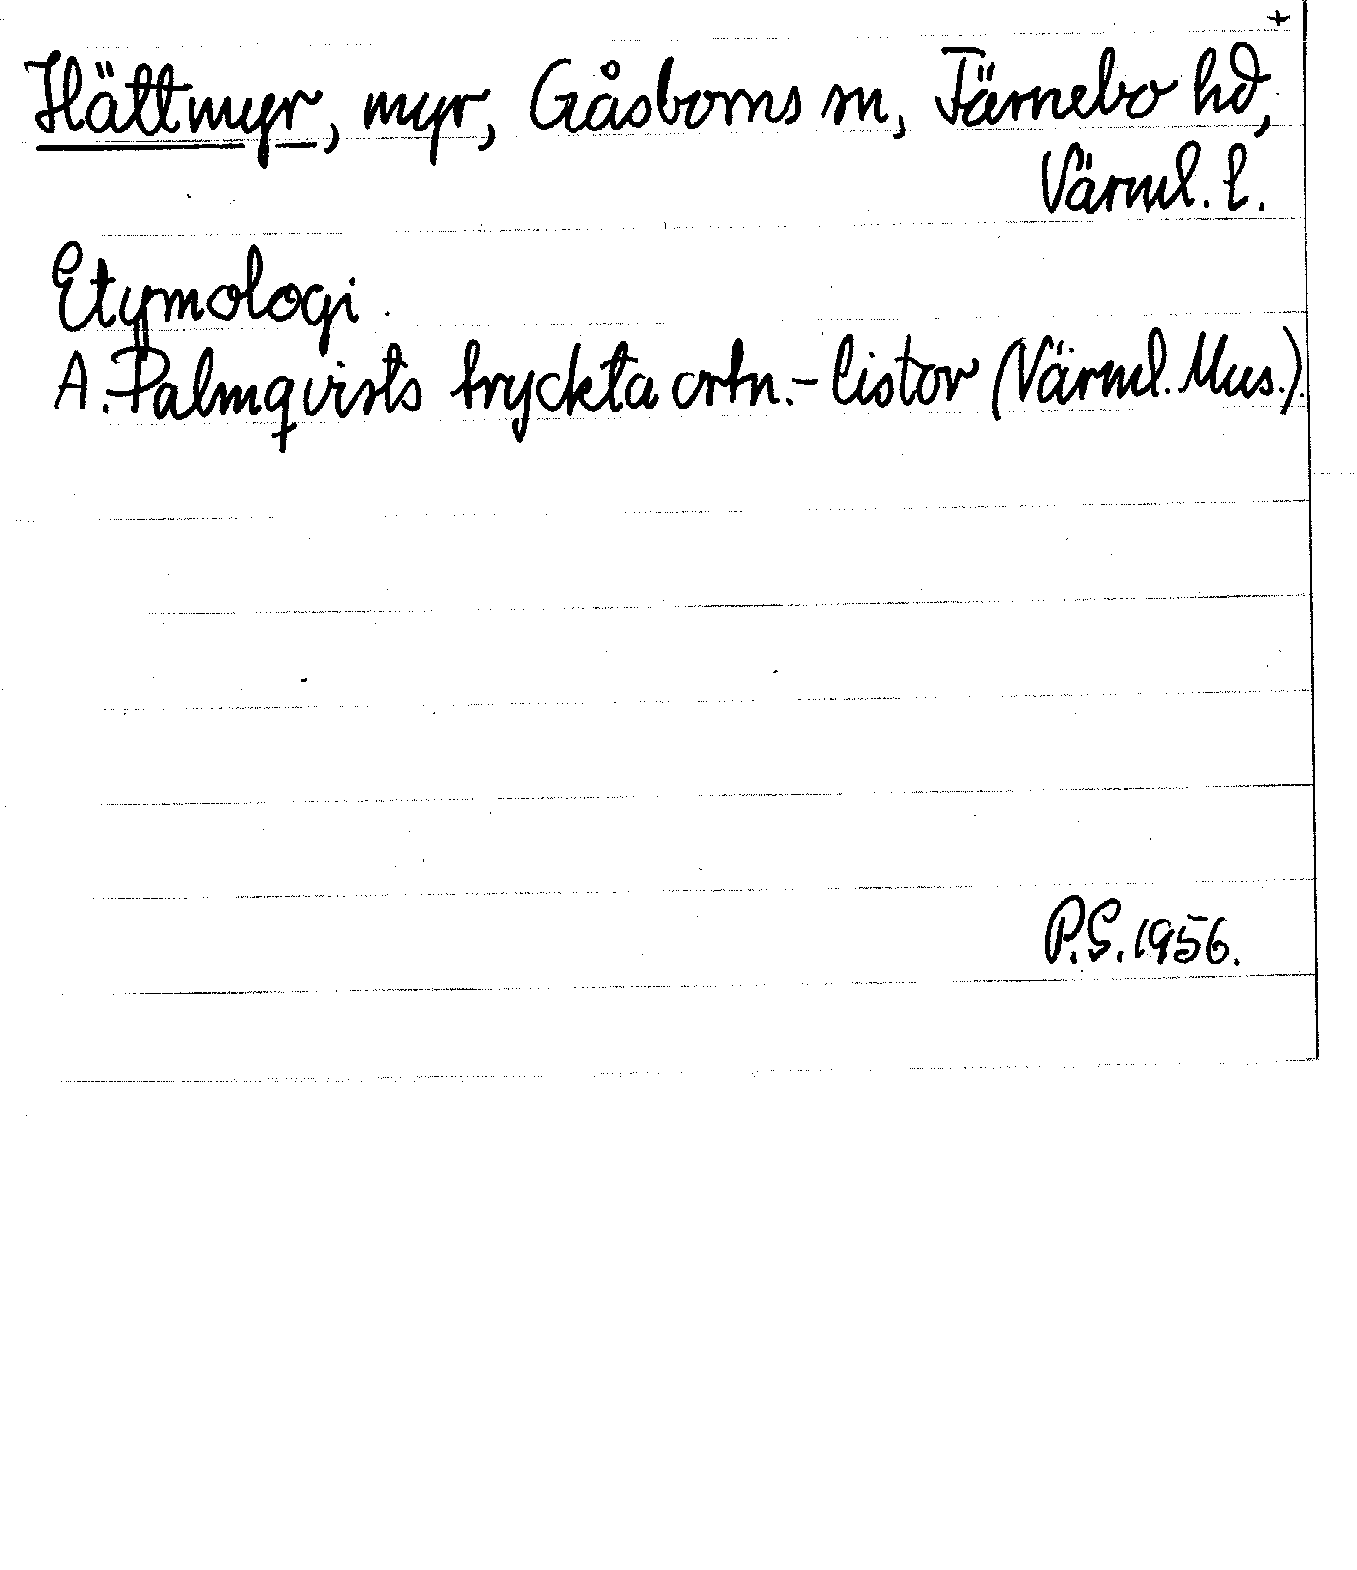 +
Hättmyr, myr, Gåsborns sn, Färnebo hd,
Värml. l.
Etymologi.
A. Palmqvists tryckta ortn.-listor (Värml. Mus.).
P.G. 1956.